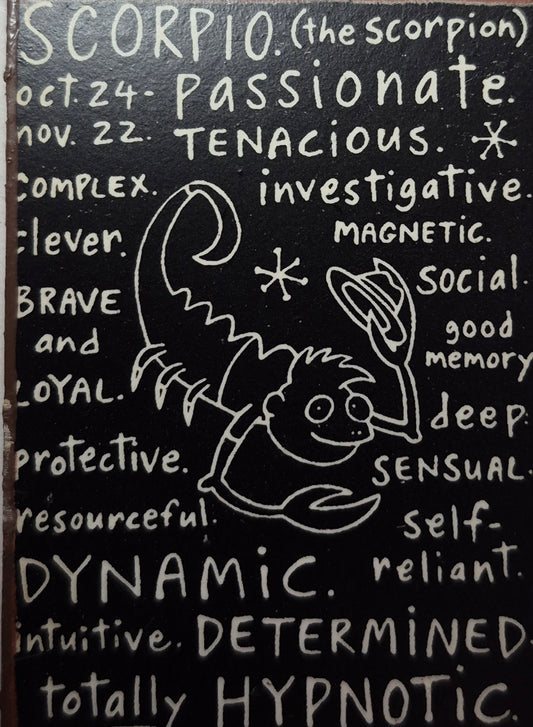 SCORPIO. (the scorpion)
oct. 24- passionate.
nov. 22. TENACIOUS.
COMPLEX. investigative.
clever. MAGNETIC.
social.
BRAVE good
and memory
LOYAL. deep.
protective. SENSUAL.
resourceful. self-
reliant.
DYNAMiC.
intuitive. DETERMiNED.
totally HYPNOTiC.